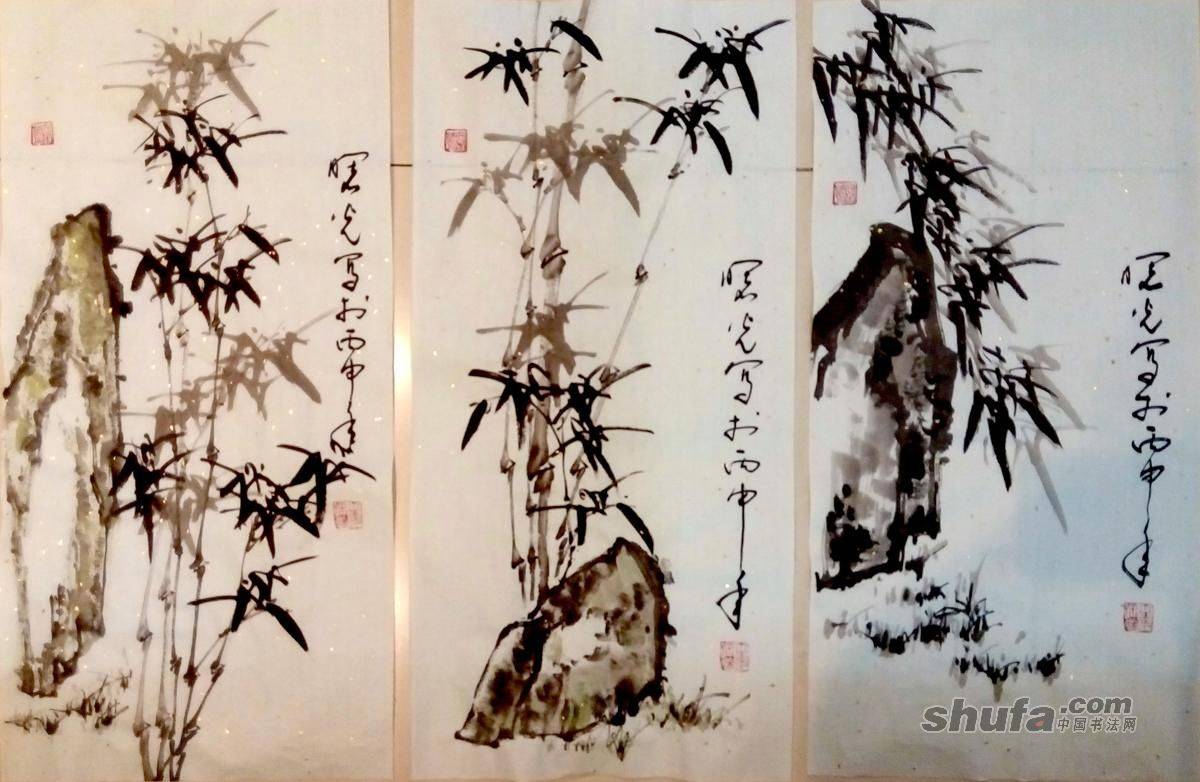 曙光写于丙申年
曙光写于丙申年
曙光写于丙申年
shufa.com
中国书法网